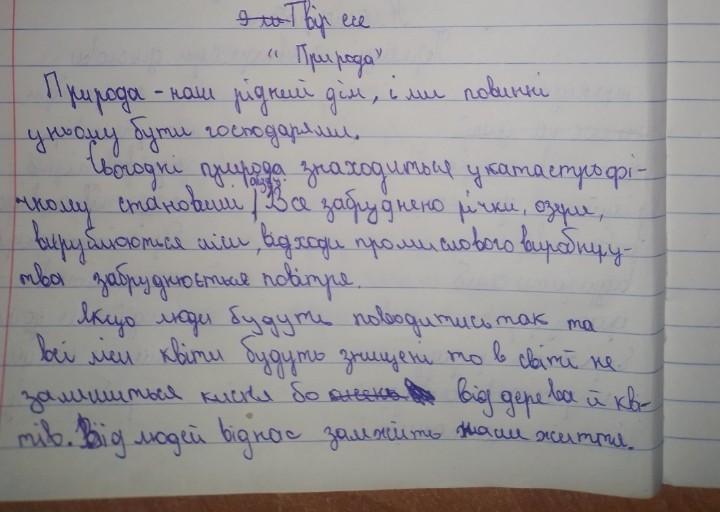 Твір есе
" Природа"
Природа - наш рідний дім, і ми повинні
у ньому бути господарями.
Сьогодні природа знаходиться у катастрофі-
чному становищі. Все забруднено річки, озера,
вирублюються ліси, відходи промислового виробниц-
тва забруднюється повітря.
Якщо люди будуть поводитись так та
всі ліси квіти будуть знищені то в світі не
залишиться кисня бо від дерева й кві-
тів. Від людей від нас залежить наши життя.